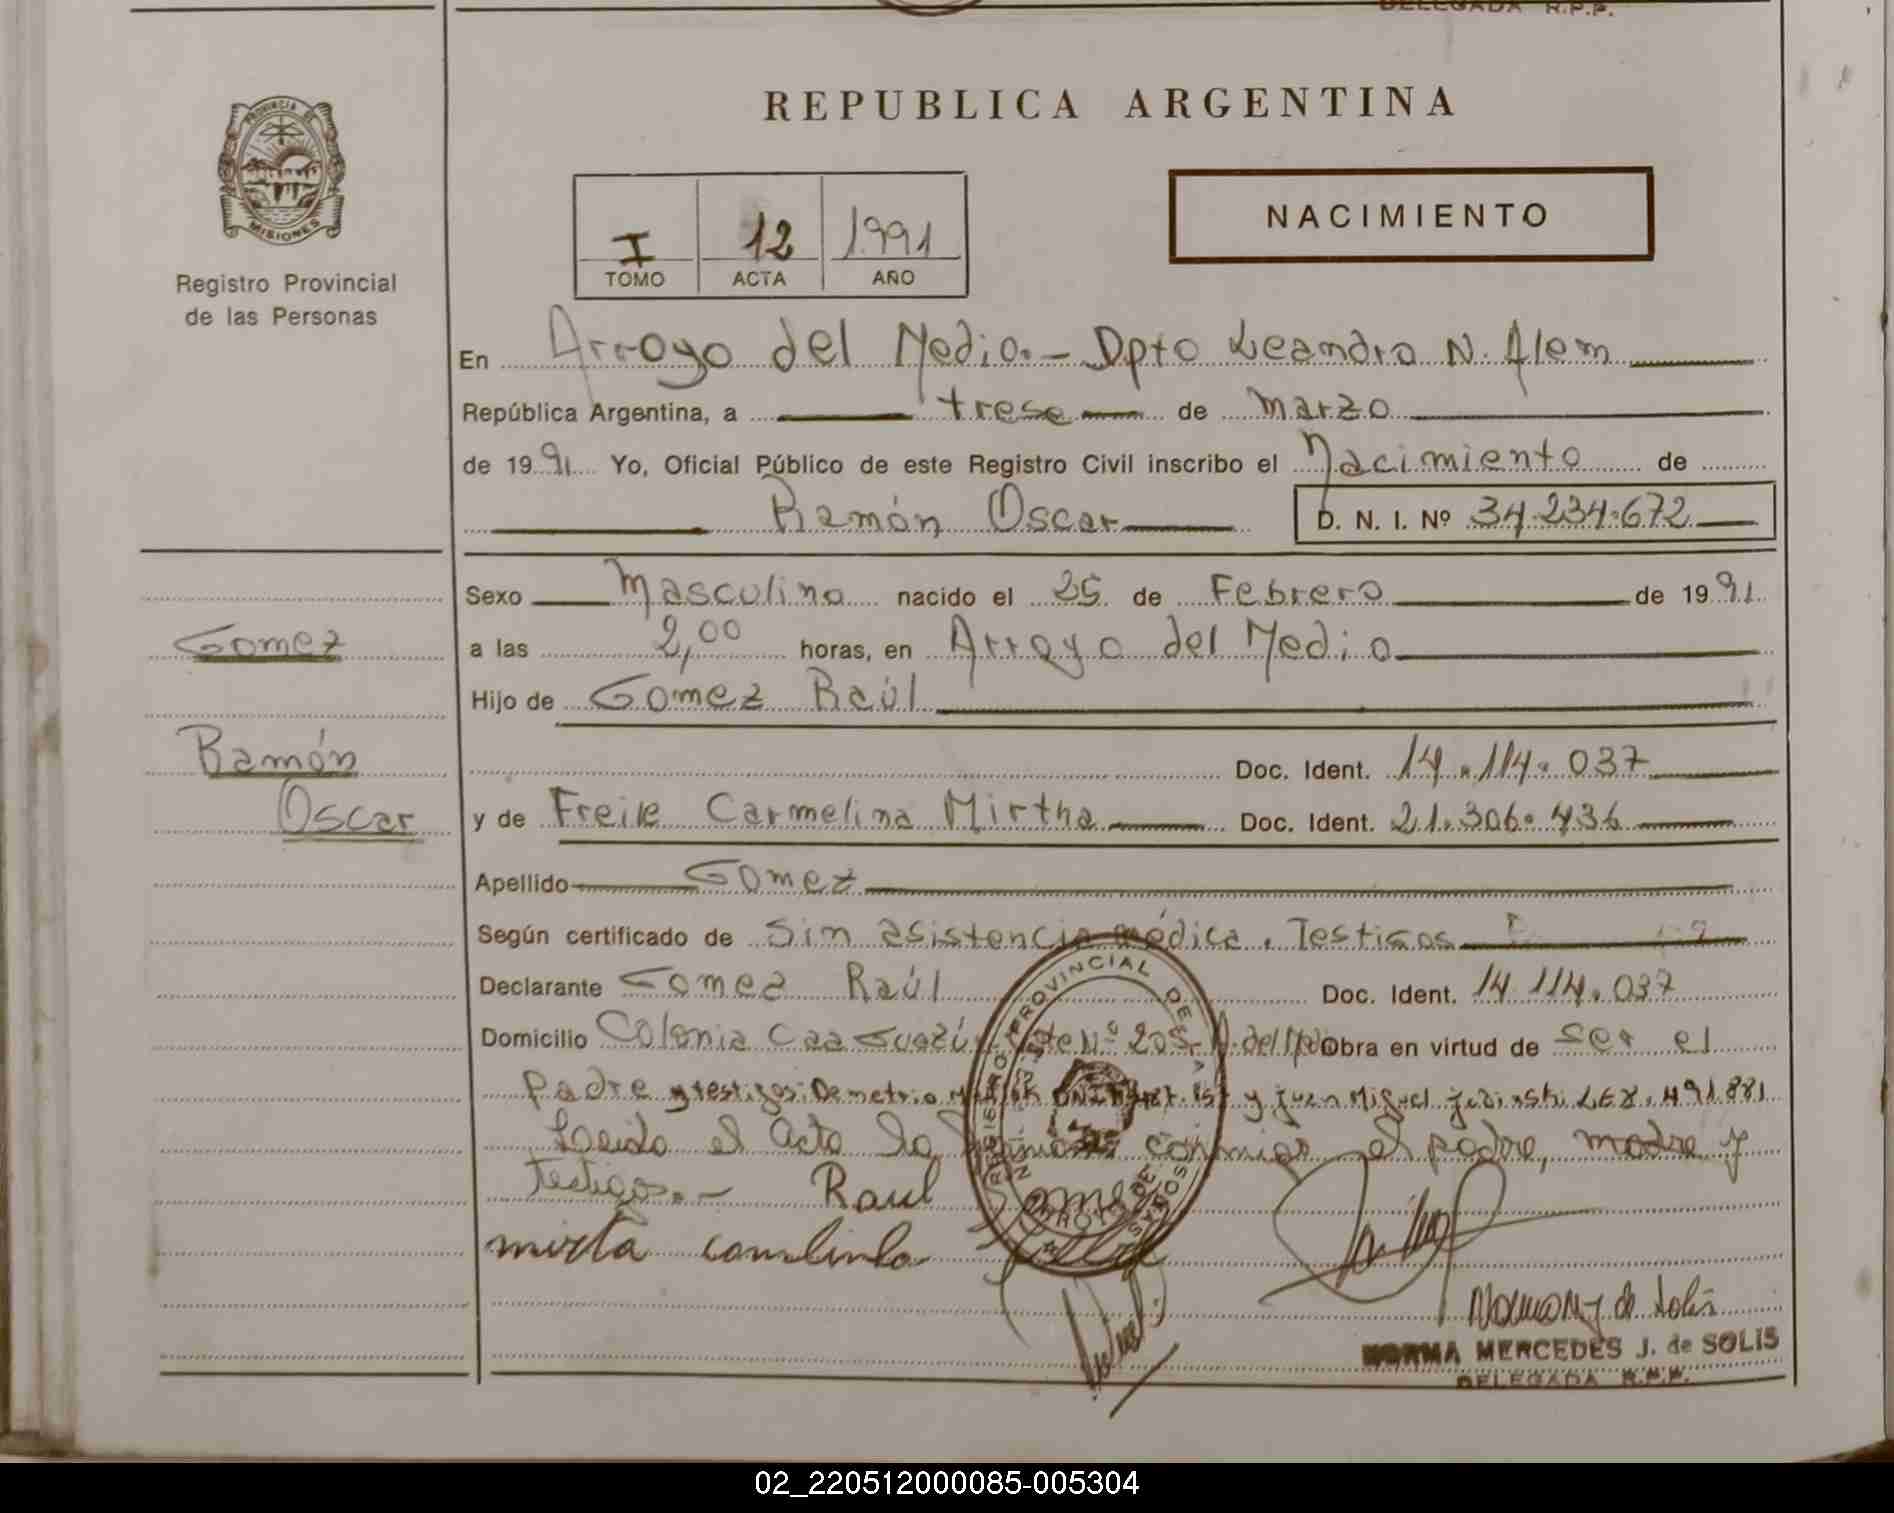 DELEGADA R.P.P.
REPUBLICA ARGENTINA
PROVINCIA DE MISIONES
Registro Provincial
de las Personas
I 12 1991
TOMO ACTA AÑO
NACIMIENTO
En Arroyo del Medio.- Dpto Leandro N. Alem
República Argentina, a trese de marzo
de 1991 Yo, Oficial Público de este Registro Civil inscribo el Nacimiento de
Ramón Oscar D. N. I. Nº 34.234.672
Sexo Masculino nacido el 25 de Febrero de 1991
Gomez
a las 2,00 horas, en Arroyo del Medio
Hijo de Gomez Raúl
Ramón
Doc. Ident. 14.114.037
Oscar
y de Freile Carmelina Mirtha Doc. Ident. 21.306.436
Apellido Gomez
Según certificado de Sin asistencia médica. Testigos
Declarante Gomez Raúl Doc. Ident. 14 114.037
Domicilio Colonia Caa Guazú Nº 205 A. del Mdo Obra en virtud de ser el
padre y testigos: Demetrio y Juan Miguel LE 8.491881
Leido el Acta la conmigo el padre, madre y
testigos.- Raul Gomez
mirta
REGISTRO PROVINCIAL DE LAS PERSONAS
NORMA MERCEDES J. de SOLIS
DELEGADA R.P.P.
02_220512000085-005304